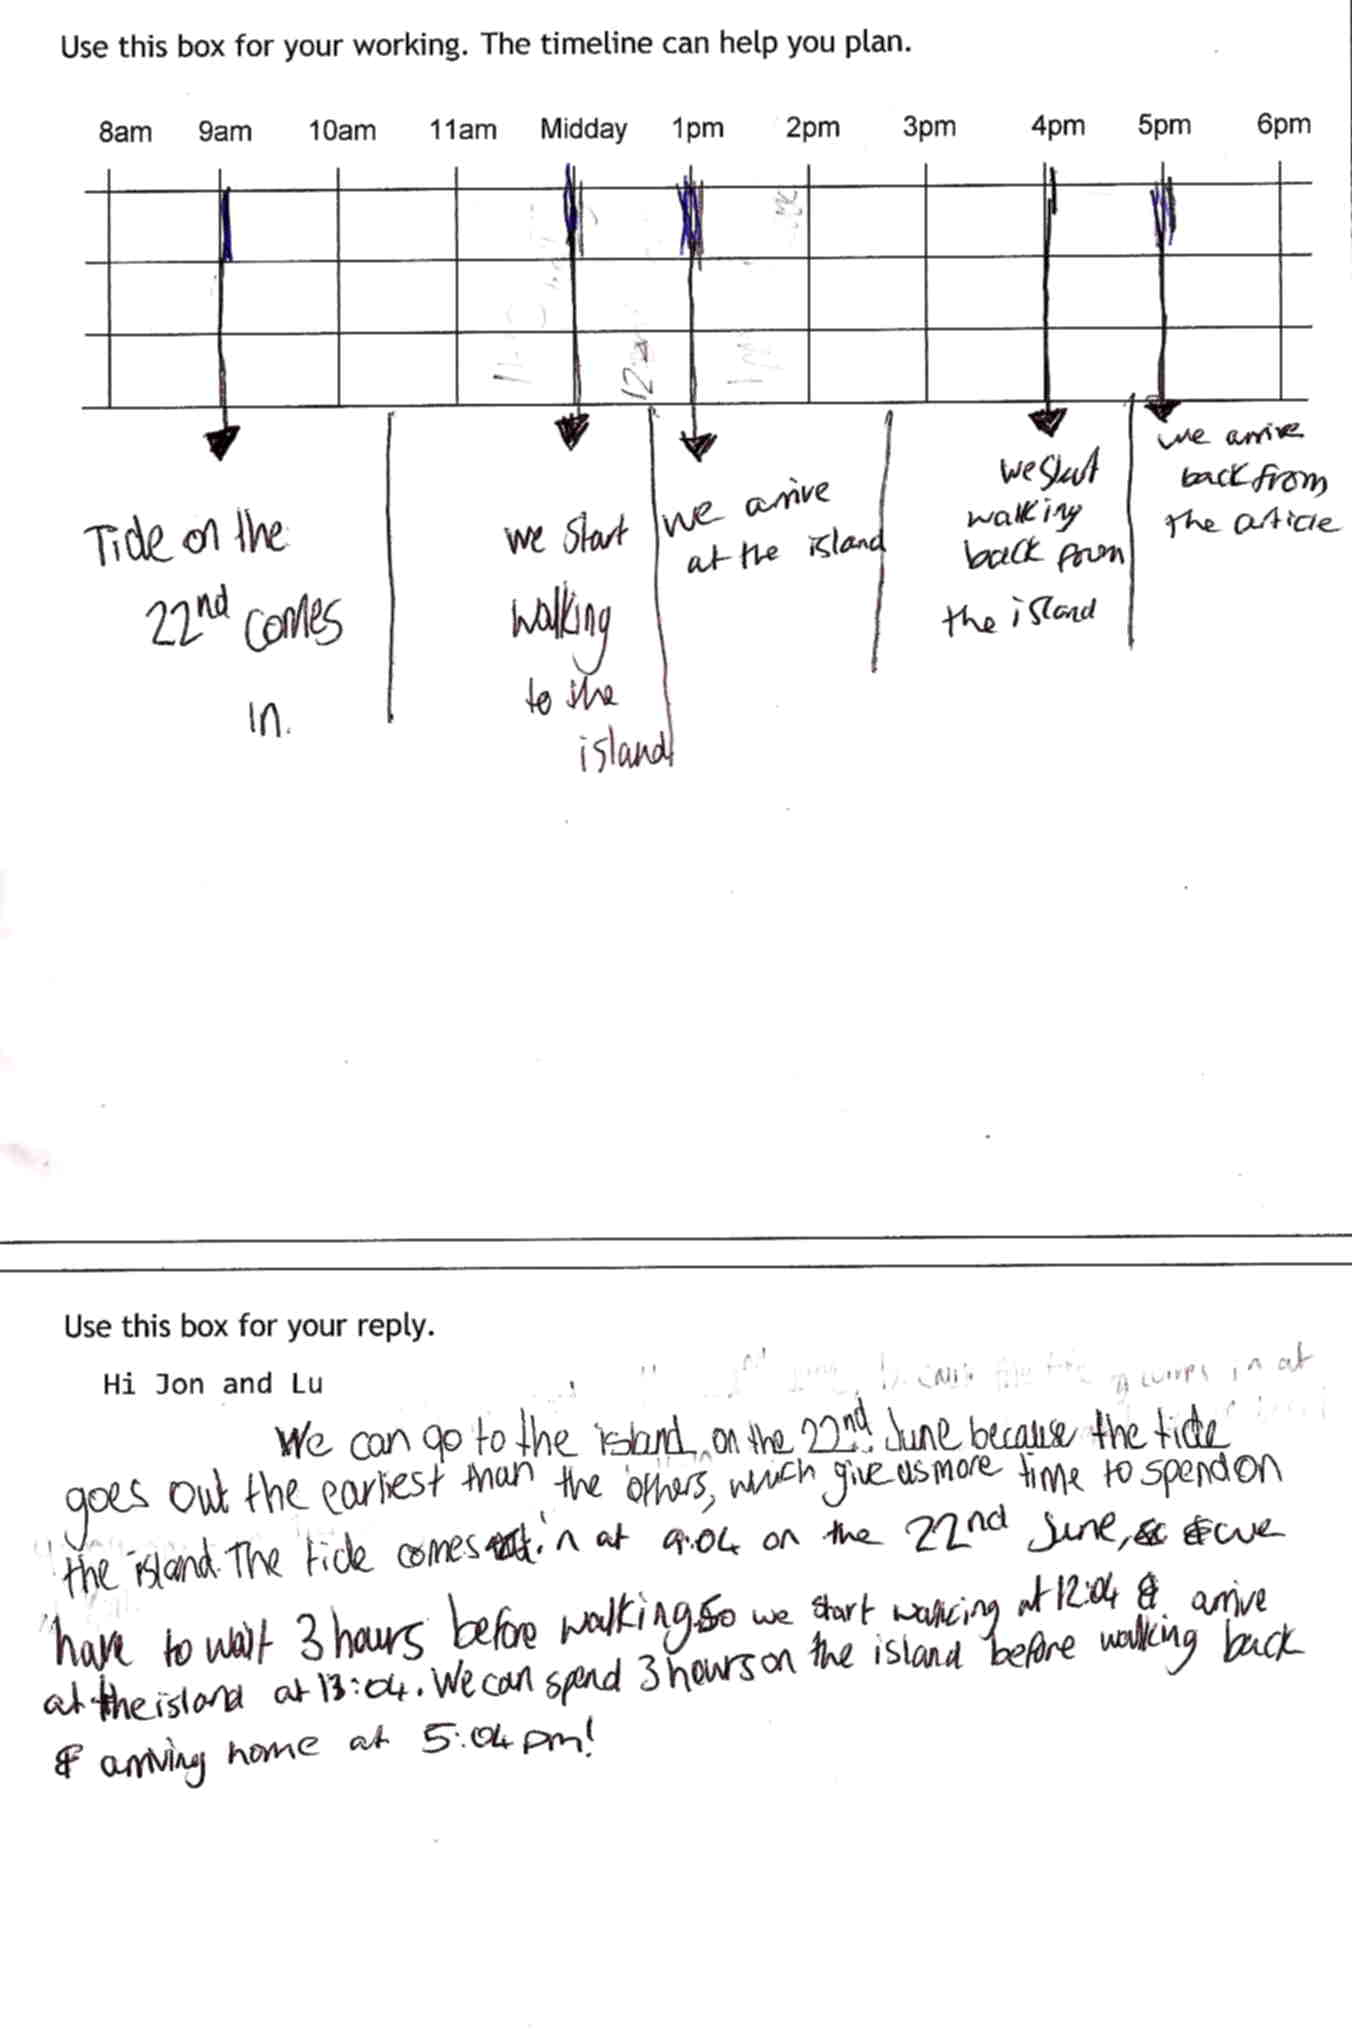 Use this box for your working. The timeline can help you plan.
8am 9am 10am 11am Midday 1pm 2pm 3pm 4pm 5pm 6pm
Tide on the
22nd comes
in.
we start
walking
to the
island
we arrive
at the island
we start
walking
back from
the island
we arrive
back from
the article
Use this box for your reply.
Hi Jon and Lu
in at
We can go to the island on the 22nd June because the tide
goes out the earliest than the others, which give us more time to spend on
the island. The tide comes in at 9:04 on the 22nd June, & we
have to wait 3 hours before walking so we start walking at 12:04 & arrive
at the island at 13:04. We can spend 3 hours on the island before walking back
& arriving home at 5:04 pm!